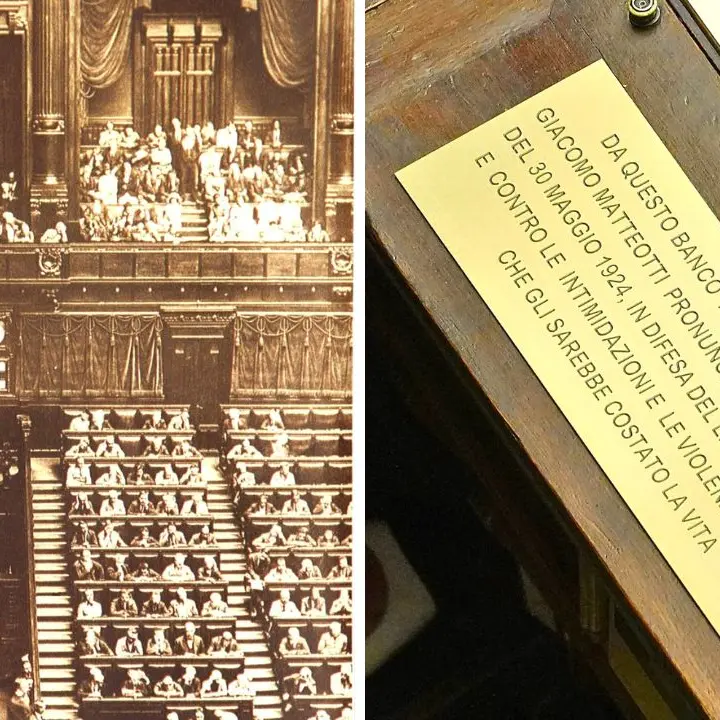 DA QUESTO BANCO
GIACOMO MATTEOTTI PRONUN
DEL 30 MAGGIO 1924, IN DIFESA DEL
E CONTRO LE INTIMIDAZIONI E LE VIOLEN
CHE GLI SAREBBE COSTATO LA VITA